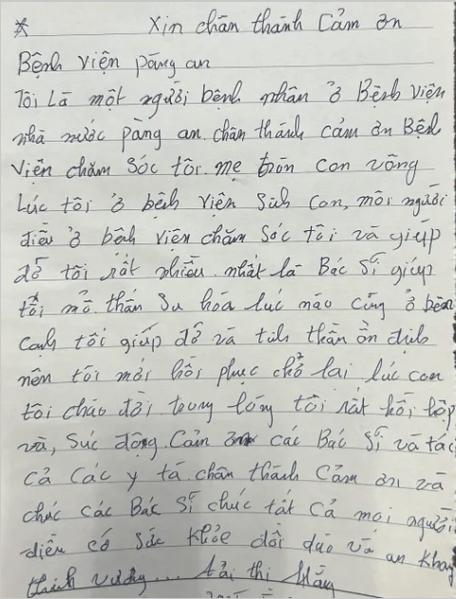 * Xin chân thành Cảm ơn
Bệnh viện pàng an
Tôi Là một người bệnh nhân ở Bệnh viện
nhà nước pàng an. chân thành cảm ơn Bệnh
viện chăm sóc tôi. mẹ tròn con vông
Lúc tôi ở bệnh viện Sinh con, mỗi người
điều ở bênh viên chăm sóc tôi và giúp
đỡ tôi rất nhiều. nhất là Bác Sĩ giúp
tôi mổ. thần Su hóa lúc nào cũng ở bên
cạnh tôi giúp đỡ và tinh thần ổn định
nên tôi mới hồi phục chở lai lúc con
tôi chào đời trong lòng tôi rất hồi hộp
và, Súc động. Cảm ơn các Bác Sĩ và tác
cả Các y tá. chân thành Cảm ơn và
chúc các Bác Sĩ chúc tất cả mọi người
điều có sức khỏe dồi dào và an khang
thịnh vượng... thị